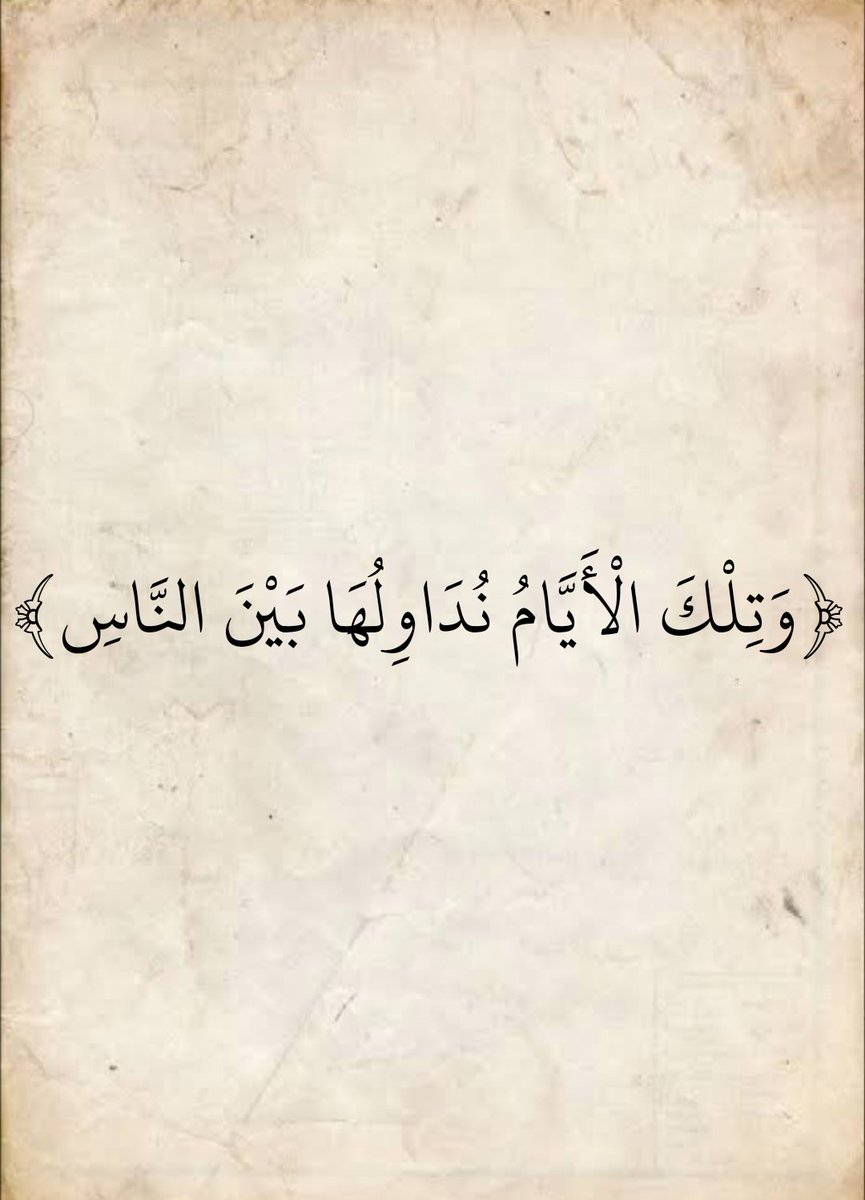 ﴿وَتِلْكَ الْأَيَّامُ نُدَاوِلُهَا بَيْنَ النَّاسِ﴾